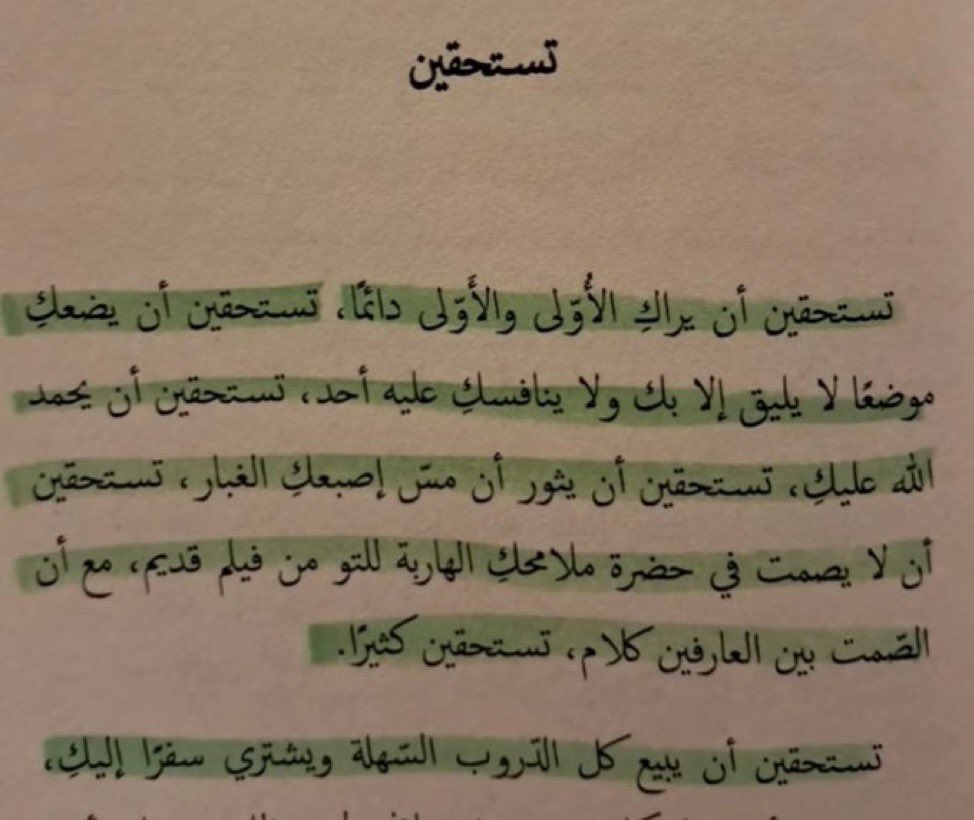 تستحقين
تستحقين أن يراكِ الأُوّلى والأَوّلى دائمًا، تستحقين أن يضعكِ
موضعًا لا يليق إلا بك ولا ينافسكِ عليه أحد، تستحقين أن يحمد
الله عليكِ، تستحقين أن يثور أن مسّ إصبعكِ الغبار، تستحقين
أن لا يصمت في حضرة ملامحكِ الهاربة للتو من فيلم قديم، مع أن
الصّمت بين العارفين كلام، تستحقين كثيرًا.
تستحقين أن يبيع كل الدّروب السّهلة ويشتري سفرًا إليكِ،